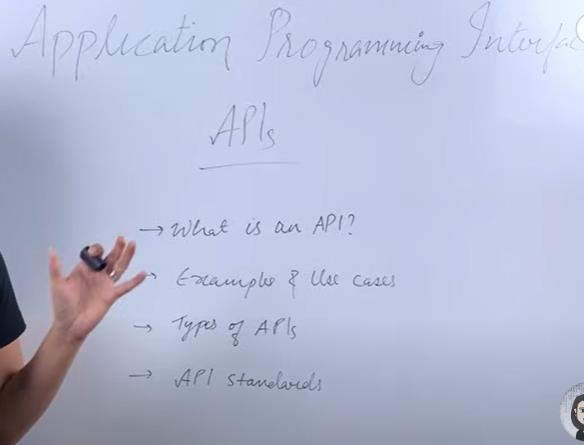 Application Programming Interfac
APIs
→ What is an API?
→ Examples & Use cases
→ Types of APIs
→ API standards